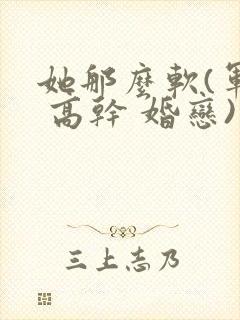 她那麼軟(軍
高幹 婚戀)
三上志乃